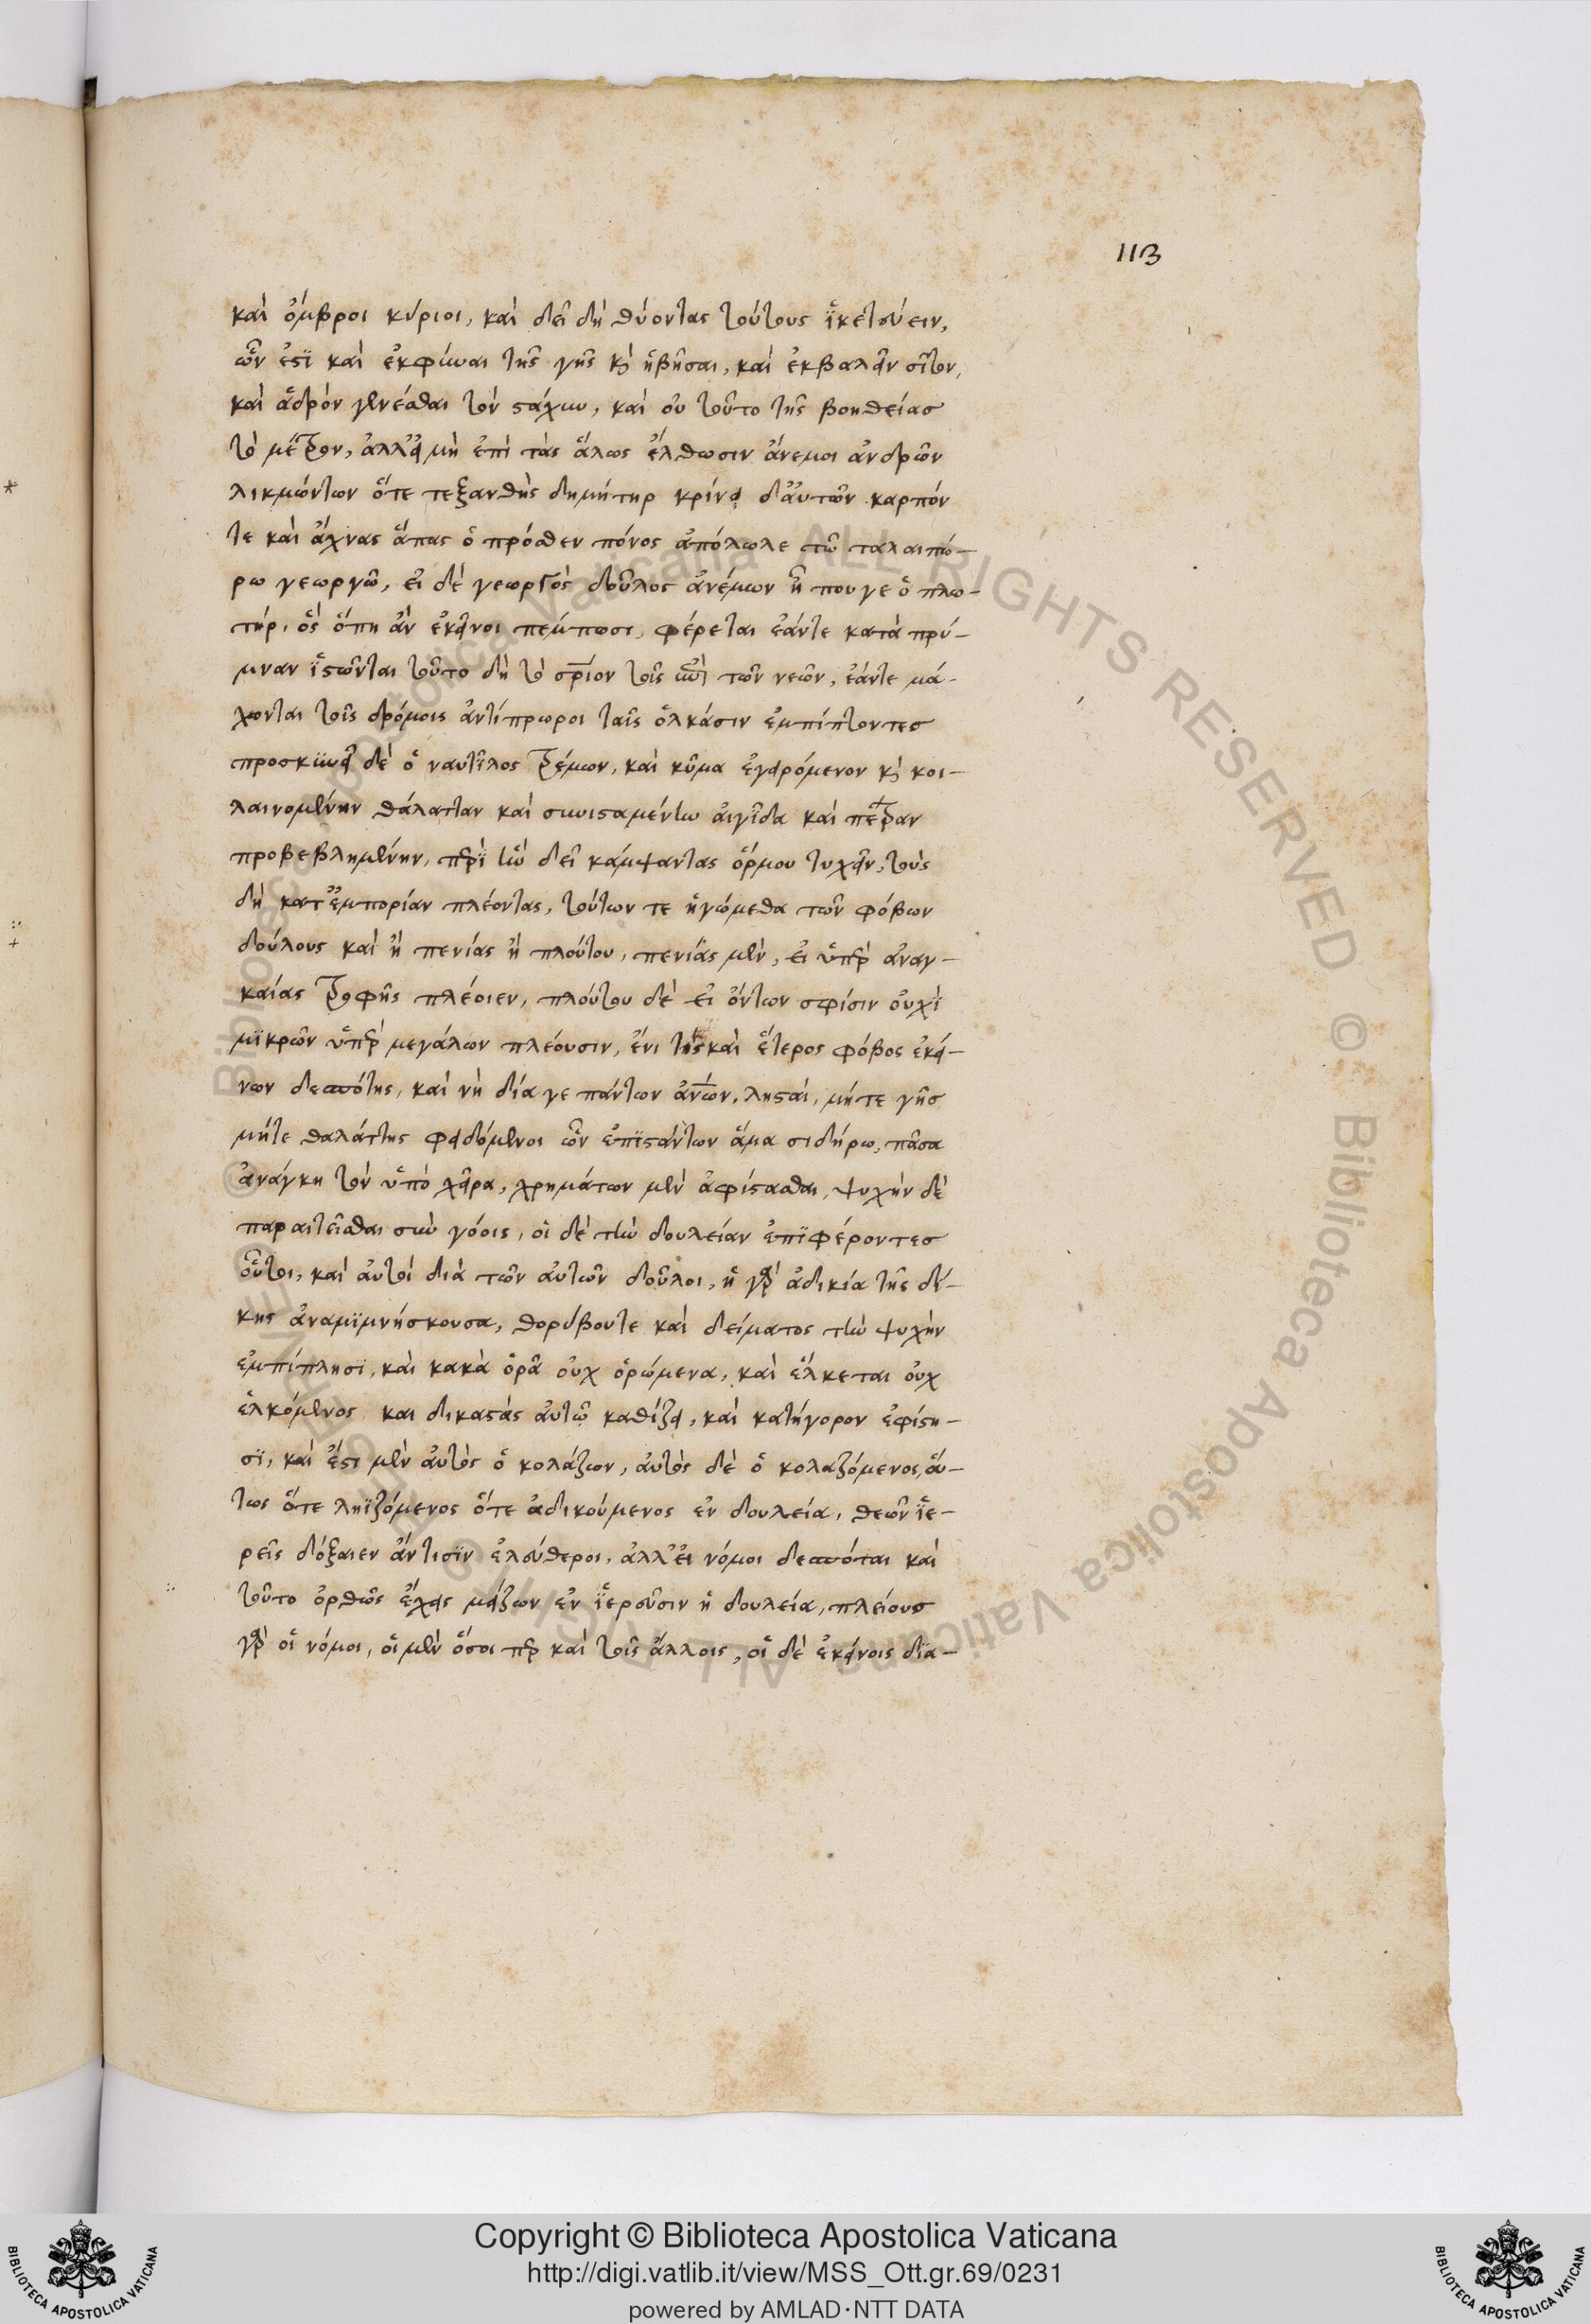 113
καὶ ὄμβροι κύριοι, καὶ δεῖ δὴ θύοντας τούτους ἱκετεύειν,
ὧν ἐστὶ καὶ ἐκφῦναι τῆς γῆς καὶ ἡβῆσαι, καὶ ἐκβαλεῖν σῖτον,
καὶ ἁδρὸν γενέσθαι τὸν στάχυν, καὶ οὐ τοῦτο τῆς βοηθείας
τὸ μέτρον, ἀλλ' εἰ μὴ ἐπὶ τὰς ἅλως ἔλθωσιν ἄνεμοι ἀνδρῶν
λικμώντων ὅτε τε ξανθὴς δημήτηρ κρίνει δ' αὐτῶν καρπόν
τε καὶ ἄχνας ἅπας ὁ πρόσθεν πόνος ἀπόλωλε τῶ ταλαιπώ-
ρω γεωργῶ, εἰ δὲ γεωργὸς δοῦλος ἀνέμων ἦ που γε ὁ πλω-
τήρ, ὃς ὅπη ἂν ἐκεῖνοι πέμπωσι, φέρεται ἐάντε κατὰ πρύ-
μναν ἱστῶνται τοῦτο δὴ τὸ τῶν νεῶν, ἐάντε μά-
χονται τοῖς δρόμοις ἀντίπρωροι ταῖς ὁλκάσιν ἐμπίπτοντες
προσκυνεῖ δὲ ὁ ναυτίλος τρέμων, καὶ κῦμα ἐγειρόμενον καὶ κοι-
λαινομένην θάλατταν καὶ συνισταμένην αἰγῖδα καὶ πέτραν
προβεβλημένην, περὶ ἣν δεῖ κάμψαντας ὅρμου τυχεῖν, τοὺς
δὴ κατ' ἐμπορίαν πλέοντας, τούτων τε ἡγώμεθα τῶν φόβων
δούλους καὶ ἢ πενίας ἢ πλούτου, πενίας μὲν, εἰ ὑπὲρ ἀναγ-
καίας τροφῆς πλέοιεν, πλούτου δὲ εἰ ὄντων σφίσιν οὐχὶ
μικρῶν ὑπὲρ μεγάλων πλέουσιν, ἔνι τις καὶ ἕτερος φόβος ἐκεί-
νων δεσπότης, καὶ νὴ δία γε πάντων ἀνθρώπων, λησταί, μήτε γῆς
μήτε θαλάττης φειδόμενοι ὧν ἐπιστάντων ἅμα σιδήρω, πᾶσα
ἀνάγκη τὸν ὑπὸ χεῖρα, χρημάτων μὲν ἀφίστασθαι, ψυχὴν δὲ
παραιτεῖσθαι σὺν γόοις, οἱ δὲ τὴν δουλείαν ἐπιφέροντες
οὗτοι, καὶ αὐτοὶ διὰ τῶν αὐτῶν δοῦλοι, ἡ γὰρ ἀδικία τῆς δί-
κης ἀναμιμνήσκουσα, θορύβου τε καὶ δείματος τὴν ψυχὴν
ἐμπίπλησι, καὶ κακὰ ὁρᾶ οὐχ ὁρώμενα, καὶ ἕλκεται οὐχ
ἑλκόμενος και δικαστὰς αὐτῶ καθίζει, καὶ κατήγορον ἐφίστη-
σι, καὶ ἔστι μὲν αὐτὸς ὁ κολάζων, αὐτὸς δὲ ὁ κολαζόμενος, οὕ-
τως ὅτε ληϊζόμενος ὅτε ἀδικούμενος ἐν δουλεία, θεῶν ἱε-
ρεῖς δόξαιεν ἄν τισιν ἐλεύθεροι, ἀλλ' εἰ νόμοι δεσπόται καὶ
τοῦτο ὀρθῶς ἔχει μείζων ἐν ἱεροῦσιν ἡ δουλεία, πλείους
γὰρ οἱ νόμοι, οἱ μὲν ὅσοι περ καὶ τοῖς ἄλλοις, οἱ δὲ ἐκείνοις δια-
Copyright © Biblioteca Apostolica Vaticana
http://digi.vatlib.it/view/MSS_Ott.gr.69/0231
powered by AMLAD·NTT DATA